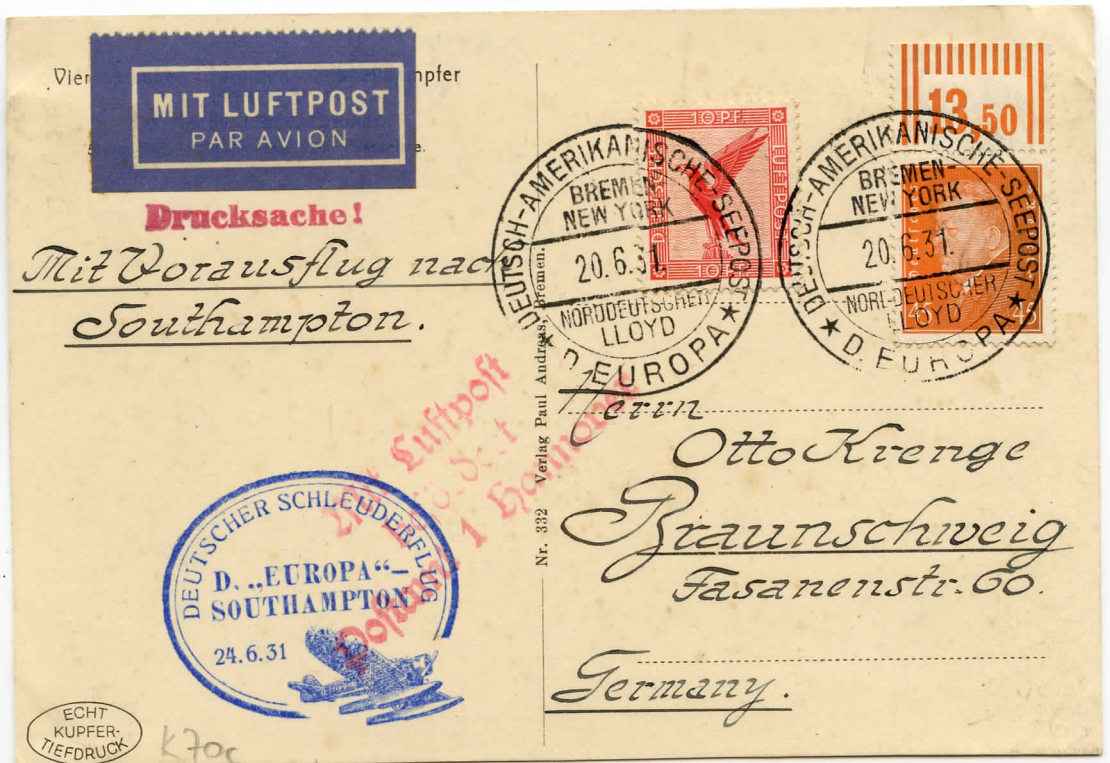 Vier mpfer
MIT LUFTPOST
PAR AVION
Drucksache!
Mit Vorausflug nach
Southampton.
10 PF.
LUFTPOST
DEUTSCHES
10 PF.
DEUTSCH-AMERIKANISCHE-SEEPOST
BREMEN-
NEW YORK
20.6.31.
NORDDEUTSCHER
LLOYD
★ D. EUROPA ★
13,50
45 45
DEUTSCH-AMERIKANISCHE-SEEPOST
BREMEN-
NEW YORK
20.6.31.
NORDDEUTSCHER
LLOYD
★ D. EUROPA ★
Mit Luftpost
befördert
Postamt 1 Hannover
Nr. 332 Verlag Paul Andreas, Bremen.
Herrn
Otto Krenge
Braunschweig
Fasanenstr. 60.
Germany.
DEUTSCHER SCHLEUDERFLUG
D. „EUROPA“–
SOUTHAMPTON
24.6.31
ECHT
KUPFER-
TIEFDRUCK
K70c